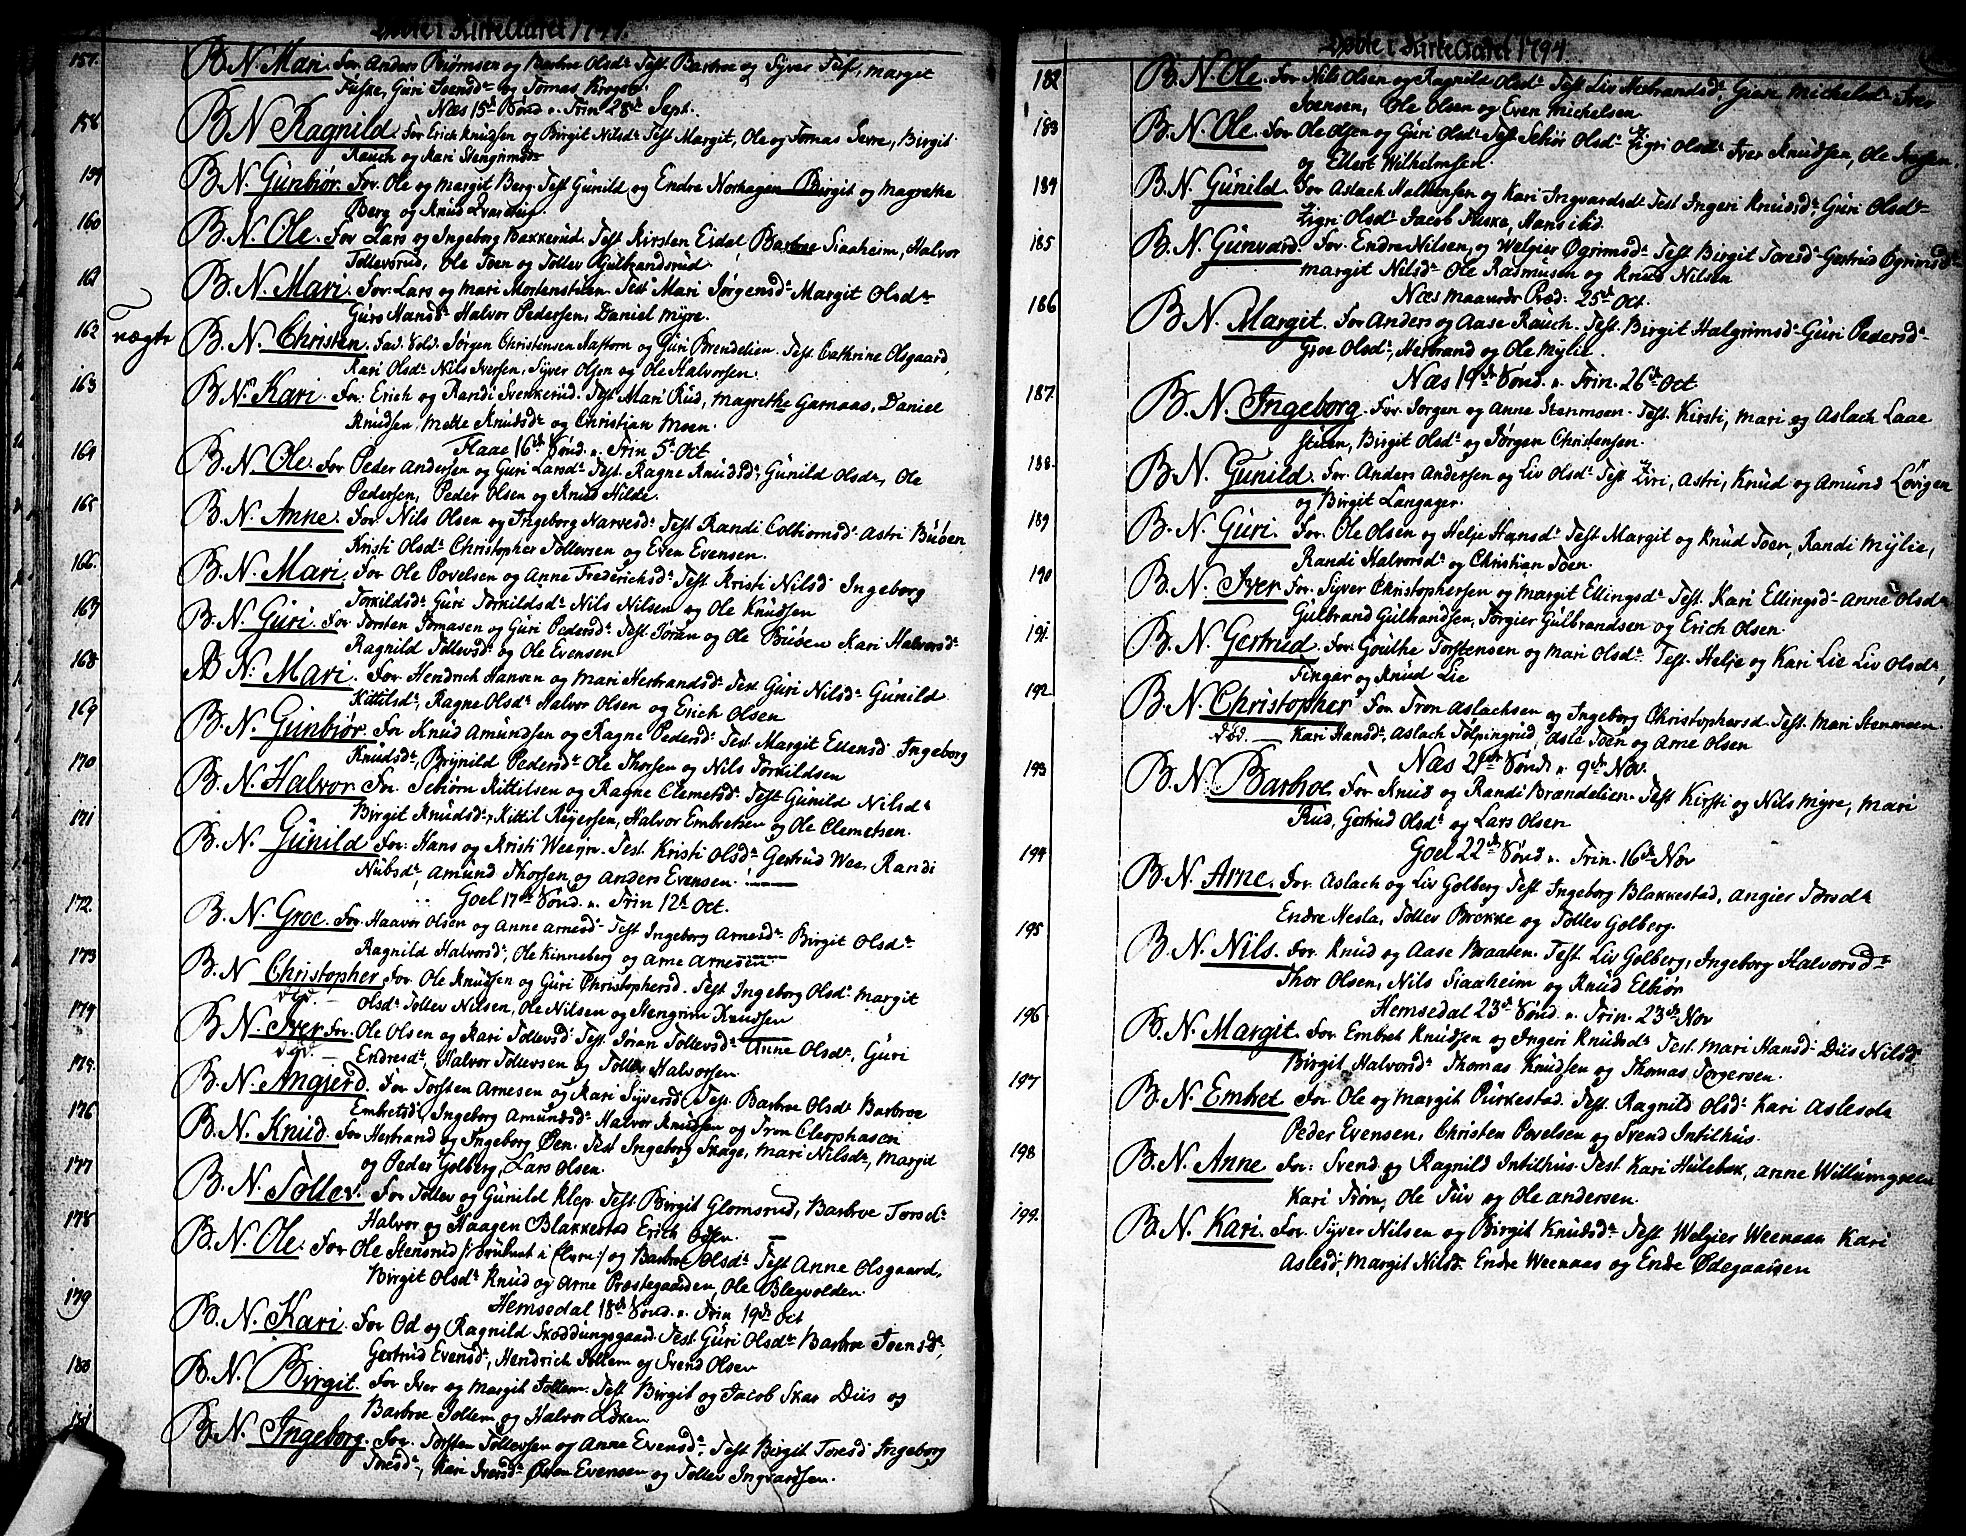 Døbte i Kirke Aaret 1794.
157. B. N. Mari. For. Anders Biørnsen og Barbroe Olsdr. Test. Barbroe og Syver Tufs, margit
Fuske, Guri Toensdr og Tomas Krogeb.
Næs 15de Sønd. p. Trin 28de Sept.
158 B N Ragnild. For. Erich Knudsen og Birgit Nilsdr. Test. Margit, Ole og Tomas Sevre, Birgit
Rauch og Kari Stengrimsdr
159 B. N. Gunbiør. For. Ole og Margit Berg. Test. Gunild og Endre Norhagen Birgit og Magrethe
Berg og Knud
160 B. N. Ole. For Lars og Ingeborg Bakkerud. Test. Kirsten Eidal, Barbroe Siaaheim, Halvor
Tollevsrud, Ole Toen og Tollev Gulbrandsrud.
161 B. N. Mari. For. Lars og Mari Mortenstuen. Test. Mari Jørgensdr. Margit Olsdr
Guro Hansdr Halvor Pedersen, Daniel Myre.
162 uægte B. N. Christen. Fad. Sold. Jørgen Christensen Nattorn og Guri Brendelien. Test. Cathrine Olsgaard,
Kari Olsdr. Nils Iversen, Syver Olsen og Ole Halvorsen.
163 B. N. Kari. For: Erich og Randi Svenkerud. Test. Mari Rud, Magrethe Garnaas, Daniel
Knudsen, Mette Knudsdr og Christian Moen.
Flaae 16de Sønd. p. Trin 5te Oct
164 B. N. Ole. For Peder Andersen og Guri Larsdr. Test. Ragne Knudsdr, Gunild Olsdr, Ole
Pedersen, Peder Olsen og Knud Hilde.
165 B. N. Anne. For. Nils Olsen og Ingeborg Narvesdr. Test Randi Colbiornsdr. Astri Buøen
Kristi Olsdr. Christopher Tollevsen og Even Evensen.
166. B. N. Mari. For Ole Povelsen og Anne Frederichsdr. Test. Kristi Nilsdr. Ingeborg
Torkildsdr. Guri Torkildsdr. Nils Nilsen og Ole Knudsen
167 B. N. Guri. For Torsten Tomasen og Guri Pedersdr. Test. Jøran og Ole Buøen Kari Halvorsdr
Ragnild Tollevsdr og Ole Evensen
168 B N. Mari. For. Hendrich Hansen og Mari Herbrandsdr. Test. Guri Nilsdr. Gunild
Kittilsdr, Ragne Olsdr. Halvor Olsen og Erich Olsen
169 B. N. Gunbiør. For Knud Amundsen og Ragne Pedersdr. Test. Margit Ellensdr. Ingeborg
Knudsdr, Brynild Pedersdr. Ole Thorsen og Nils Torkildsen
170 B. N. Halvor For. Sebiørn Kittilsen og Ragne Clemetsdr. Test. Gunild Nilsdr
Birgit Knudsdr, Kittil Reyersen, Halvor Embretsen og Ole Clemetsen.
171 B. N. Gunild For: Hans og Kristi Weeyn. Test. Kristi Olsdr. Gertrud Wee, Randi
Nubsdr, Amund Thorsen og Anders Evensen.
Goel 17de Sønd. p. Trin 12te Oct.
172. B. N. Groe. For. Haavor Olsen og Anne Arnesdr. Test. Ingeborg Arnesdr. Birgit Olsdr
Ragnild Halvorsdr, Ole Kinneberg og Arne Arnesen
173 B. N Christopher For. Ole Knudsen og Guri Christophersd. Test. Ingeborg Olsdr. Margit
død. Olsdr. Tollev Nilsen, Ole Nilsen og Stengrim Knudsen
174 B. N. Iver. For. Ole Olsen og Kari Tollevsdr. Test. Jøran Tollevsdr. Anne Olsdr, Guri
død. Endresdr, Halvor Tollevsen og Tollev Halvorsen.
175. B. N. Angierd. For Torsten Arnesen og Kari Syversdr. Test. Barbroe Olsdr. Barbroe
Embretsdr. Ingeborg Amundsdr. Halvor Knudsen og Tron Cleophasen
176 B. N. Knud. For Herbrand og Ingeborg Øen. Test. Ingeborg Skage, Mari Nilsdr, Margit
og Peder Golberg, Lars Olsen.
177 B. N. Tollev. For Tollev og Gunild Klep. Test. Birgit Glomsrud, Barbroe Torsdr.
Halvor og Haagen Blakkestad Erich Olsen.
178 B. N. Ole. For Ole Stensrud og Barbroe Olsdr. Test Anne Olsgaard,
Birgit Olsdr. Knud og Arne Præstegaarden, Ole Blegvolden.
Hemsedal 18de Sønd. p. Trin 19de Oct
179 B. N. Kari. For Od og Ragnild Skøddungsgaard. Test. Guri Olsdr. Barbroe Toensdr,
Gertrud Evensdr, Hendrich Tollem og Svend Olsen
180 B. N. Birgit. For Iver og Margit Tollem. Test. Birgit og Jacob Skar Diis og
Barbroe Tollem og Halvor Løken
181 B. N. Ingeborg. For. Torsten Tollevsen og Anne Evensdr. Test Birgit Toresdr. Ingeborg
Toresdr, Kari Iversdr. Even Evensen og Tollev Ingvardsen.
Døbte i Kirke Aaret 1794
182 B. N. Ole. For Nils Olsen og Ragnild Olsdr. Test Liv Herbrandsdr, Gien Michelsdr. Iver
Toensen, Ole Olsen og Even Michelsen
183 B. N. Ole. For Ole Olsen og Guri Olsdr. Test. Sebiør Olsdr. Zigri Olsdr. Iver Knudsen, Ole Iversen
og Ellert Wilhelmsen.
184 B. N. Gunild. For Aslach Halvorsen og Kari Ingvardsdr. Test Ingeri Knudsdr, Guri Olsdr.
Zigri Olsdr. Jacob Fuske, Hans ibid.
185 B. N. Gunvard. For. Endre Nilsen, og Welgier Øgrimsdr. Test. Birgit Toresdr. Gertrud Øgrimsdr.
Margit Nilsdr. Ole Rasmusen og Knud Nilsen
Næs Maaneds Præd: 25de Oct.
186 B N. Margit. For Anders og Aase Rauch. Test. Birgit Halgrimsdr. Guri Pedersdr.
Groe Olsdr, Herbrand og Ole Mylie.
Næs 19de Sønd. p. Trin. 26de Oct
187. B. N. Ingeborg. For Jorgen og Anne Stenmoen. Test. Kirsti, Mari og Aslach Laae
stuen, Birgit Olsdr og Jørgen Christensen.
188. B. N. Gunild. For Anders Andersen og Liv Olsdr. Test Ziri, Astri, Knud og Amund Løvigen
og Birgit Langager.
189 B. N. Guri. For. Ole Olsen og Helje Hansdr. Test Margit og Knud Toen, Randi Mylie,
Randi Halvorsdr og Christian Toen.
190 B. N. Iver For. Syver Christophersen og Margit Ellingsdr. Test. Kari Ellingsdr. Anne Olsdr,
Gulbrand Gulbrandsen, Torgier Gulbrandsen og Erich Olsen.
191. B. N. Gertrud. For. Gouthe Torstensen og Mari Olsdr. Test. Helje og Kari Lie Liv Olsdr,
Fingar og Knud Lie
192 B. N. Christopher For Tron Aslachsen og Ingeborg Christophersd. Test. Mari Stenmoen.
død. Kari Hansdr, Aslach Tolpingrud, Asle Toen og Arne Olsen
Næs 21de Sønd. p. 9de Nov.
193 B. N. Barbroe. For Knud og Randi Brændelien. Test Kirsti og Nils Myre, Mari
Rud, Gertrud Olsdr og Lars Olsen
Goel 22de Sønd. p. Trin. 16de Nov
194 B. N. Arne. For. Aslach og Liv Golberg Test Ingeborg Blakkestad, Angier Torsdr
Endre Hesla, Tollev Brekke og Tollev Golberg.
195 B. N. Nils. For. Knud og Aase Braaten. Test. Liv Golberg, Ingeborg Halvorsdr.
Thor Olsen, Nils Siaaheim og Knud Elbiør
Hemsedal 23de Sønd. p. Trin. 23de Nov
196 B. N. Margit. For Embret Knudsen og Ingeri Knudsdr. Test. Mari Hansdr. Diis Nilsdr
Birgit Halvorsdr. Thomas Knudsen og Thomas Torgersen.
197 B. N. Embret For Ole og Margit Pukkestad. Test. Ragnild Olsdr. Kari Aslesdr
Peder Evensen, Christen Povelsen og Svend Intilhus.
198 B. N. Anne For: Svend og Ragnild Intilhus. Test. Kari Hulebak, Anne Willumgreen
Kari Trøm, Ole Tuv og Ole Andersen.
199. B. N. Kari. For. Syver Nilsen og Birgit Knudsdr. Test Welgier Weenaas Kari
Aslesdr, Margit Nilsdr. Endre Weenaas og Endre Ødegaarden